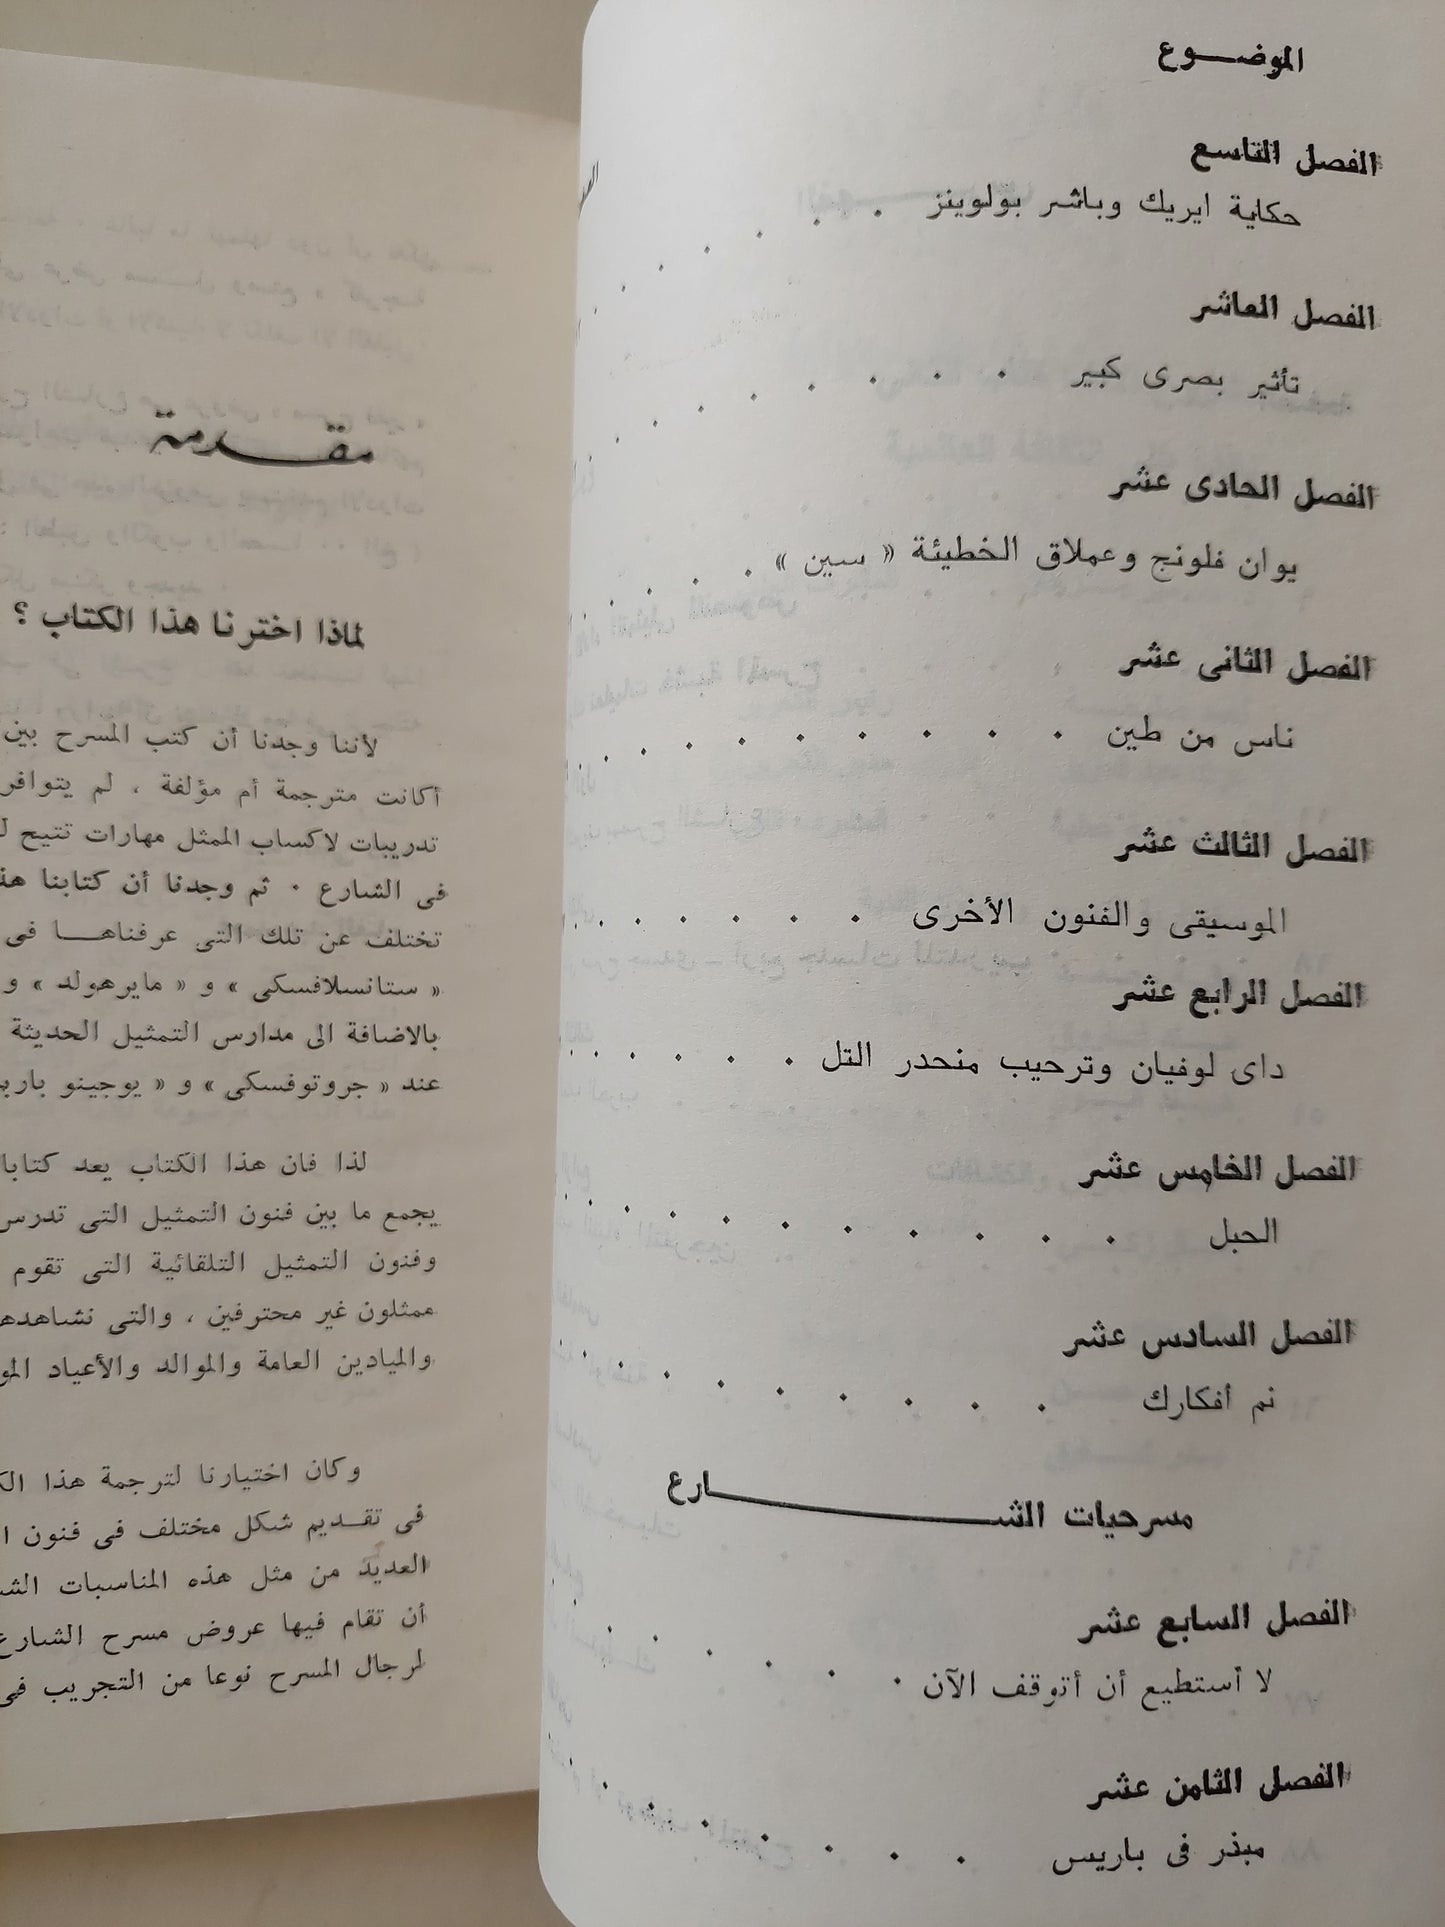 الموضــوع
الفصل التاسع
حكاية ايريك وباشر بولوينز
الفصل العاشر
تأثير بصرى كبير
الفصل الحادى عشر
يوان فلونج وعملاق الخطيئة « سين »
الفصل الثانى عشر
ناس من طين
الفصل الثالث عشر
الموسيقى والفنون الأخرى
الفصل الرابع عشر
داى لوفيان وترحيب منحدر التل
الفصل الخامس عشر
الحبل
الفصل السادس عشر
نم أفكارك
مسرحيات الشـــارع
الفصل السابع عشر
لا أستطيع أن أتوقف الآن
الفصل الثامن عشر
مبذر فى باريس
مقـــدمة
لماذا اخترنا هذا الكتاب ؟
لأننا وجدنا أن كتب المسرح بين
أكانت مترجمة أم مؤلفة ، لم يتوافر
تدريبات لاكساب الممثل مهارات تتيح
فى الشارع ٠ ثم وجدنا أن كتابنا
تختلف عن تلك التى عرفناهـــا فى
« ستانسلافسكى » و « مايرهولد » و
بالاضافة الى مدارس التمثيل الحديثة
عند « جروتوفسكى » و « يوجينو
لذا فان هذا الكتاب يعد كتابا
يجمع ما بين فنون التمثيل التى تدرس
وفنون التمثيل التلقائية التى تقوم
ممثلون غير محترفين ، والتى
والميادين العامة والموالد والأعياد
وكان اختيارنا لترجمة هذا
فى تقــديم شكل مختلف فى فنون
العديد من مثل هذه المناسبات
أن تقام فيها عروض مسرح الشارع
لرجال المسرح نوعا من التجريب فى